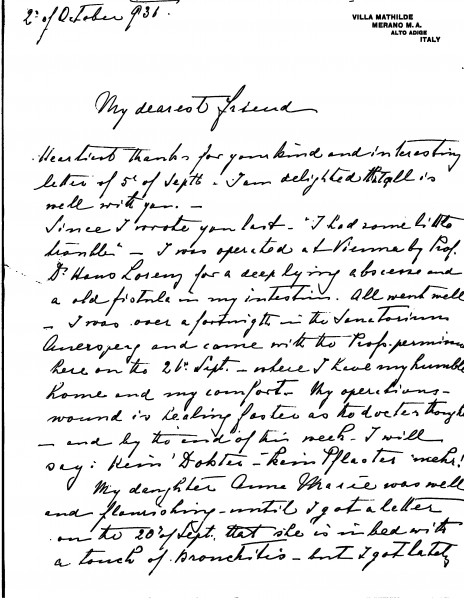 2ⁿ of October 936.
VILLA MATHILDE
MERANO M. A.
ALTO ADIGE
ITALY
My dearest friend
Heartiest thanks for your kind and interesting
letter of 5ᵗ of Septb - I am delighted that all is
well with you. -
Since I wrote you last - "I had some little
trouble" - I was operated at Vienna by Prof.
Dʳ Hans Lorenz for a deep lying abscess and
a old fistula in my intestin. All went well
- I was over a fortnigth in the Sanatorium
Auersperg and came with the Profs. permission
here on the 26ᵗ Sept. - where I have my humble
home and my comfort - My operations-
wound is healing faster as the docter thought
- and by the end of this week - I will
say: Kein Dokter - kein Pflaster mehr!
My daughter Anne Marie was well
and flourishing - until I got a letter
on the 20ᵗ of Sept. that she is in bed with
a touch of Bronchitis - but I got lately